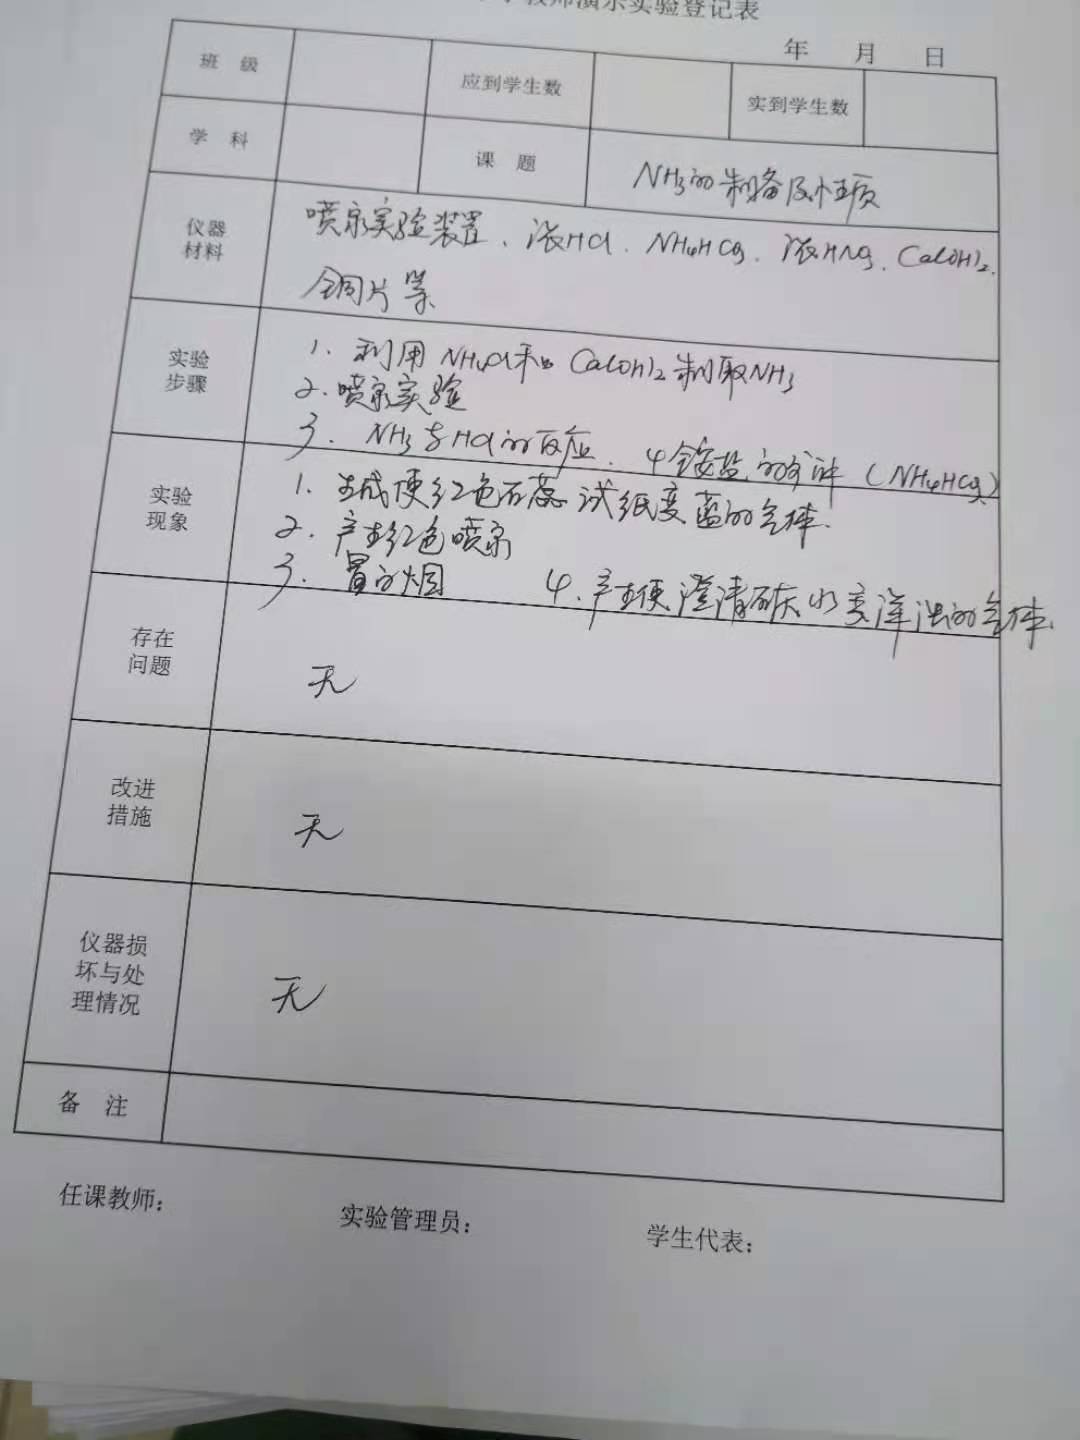 教师演示实验登记表
年 月 日
班 级 应到学生数 实到学生数
学 科 课 题 NH3的制备及性质
仪器材料 喷泉实验装置、浓HCl、NH4HCO3、浓HNO3、Ca(OH)2、
铜片等
实验步骤 1. 利用NH4Cl和Ca(OH)2制取NH3
2. 喷泉实验
3. NH3与HCl的反应. 4 铵盐的 (NH4HCO3)
实验现象 1. 生成使红色石蕊试纸变蓝的气体.
2. 产生红色喷泉
3. 冒白烟 4. 产生使澄清石灰水变浑浊的气体.
存在问题 无
改进措施 无
仪器损坏与处理情况 无
备 注
任课教师: 实验管理员: 学生代表: